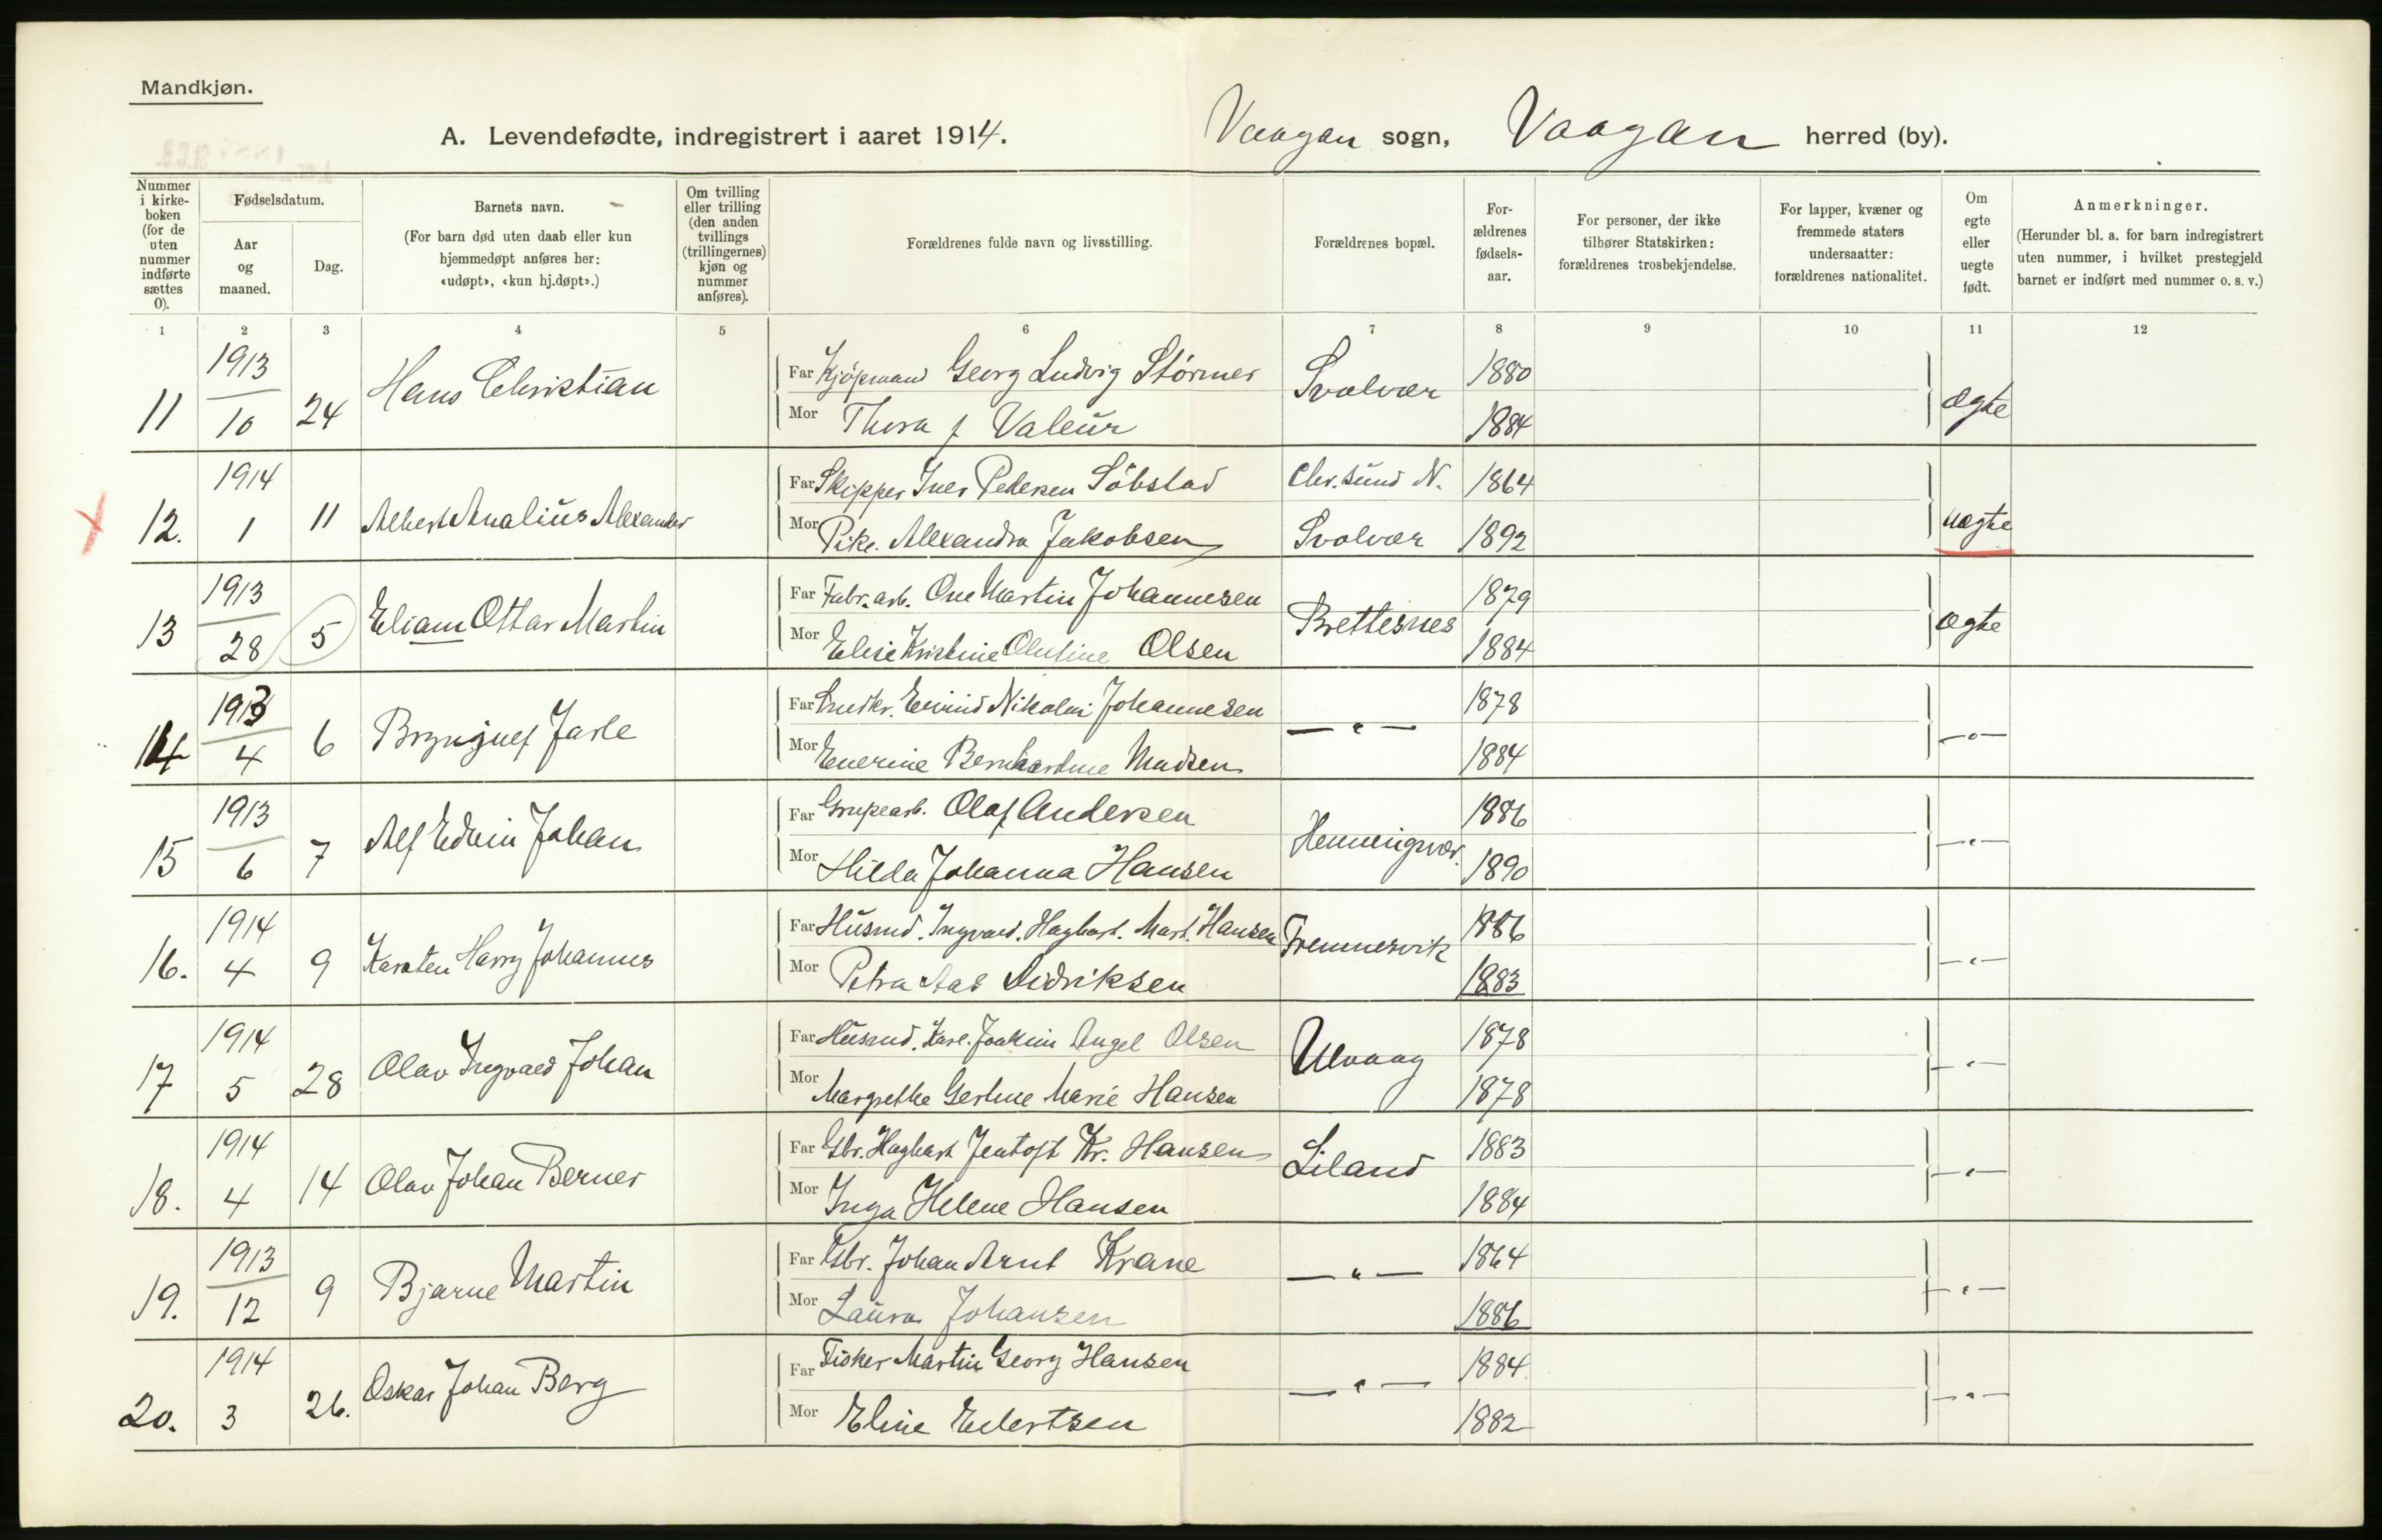 Mandkjøn.
A. Levendefødte, indregistrert i aaret 1914. Vaagan sogn, Vaagan herred (by).
Nummer i kirke-boken (for de uten nummer indførte sættes 0).
Fødselsdatum.
Aar og maaned.
Dag.
Barnets navn.
(For barn død uten daab eller kun hjemmedøpt anføres her: «udøpt», «kun hj.døpt».)
Om tvilling eller trilling (den anden tvillings (trillingernes) kjøn og nummer anføres).
Forældrenes fulde navn og livsstilling.
Forældrenes bopæl.
For-ældrenes fødsels-aar.
For personer, der ikke tilhører Statskirken: forældrenes trosbekjendelse.
For lapper, kvæner og fremmede staters undersaatter: forældrenes nationalitet.
Om egte eller uegte født.
Anmerkninger.
(Herunder bl. a. for barn indregistrert uten nummer, i hvilket prestegjeld barnet er indført med nummer o. s. v.)
1 2 3 4 5 6 7 8 9 10 11 12
11 1913 10 24 Hans Christian
Far Kjøpmand Georg Ludvig Störmer Svolvær 1880 ægte
Mor Thora f Valeur 1884
12. 1914 1 11 Albert Analius Alexander
Far Skipper Iver Pedersen Söbstad Chr.sund N. 1864 uægte
Mor Pike. Alexandra Jakobsen Svolvær 1892
13 1913 28 5 Eliam Ottar Martin
Far Fabr.arb. One Martin Johannesen Brettesnes 1879 ægte
Mor Elise Kristine Olufine Olsen 1884
14 1913 4 6 Brynjulf Jarle
Far Eivind Nikolai Johannesen — " — 1878 — " —
Mor Enerine Bernhardine Madsen 1884
15 1913 6 7 Alf Edvin Johan
Far Olaf Andersen Henningsvær. 1886 — " —
Mor Hilda Johanna Hansen 1890
16. 1914 4 9 Karsten Harry Johannes
Far Husmd. Ingvald. Hagbart. Mart. Hansen 1886 — " —
Mor Petra Aas Didriksen 1883
17 1914 5 28 Olav Ingvald Johan
Far Husmd. Karl. Joakim Angel Olsen Ulvaag 1878 — " —
Mor Margrethe Gertine Marie Hansen 1878
18. 1914 4 14 Olav Johan Berner
Far Gbr. Hagbart Jentoft Kr. Hansen Liland 1883 — " —
Mor Inga Helene Hansen 1884
19. 1913 12 9 Bjarne Martin
Far Gbr. Johan Arnt Krane — " — 1864 — " —
Mor Laura Johansen 1886
20. 1914 3 26. Oskar Johan Berg
Far Fisker Martin Georg Hansen — " — 1884 — " —
Mor Eline Eilertsen 1882